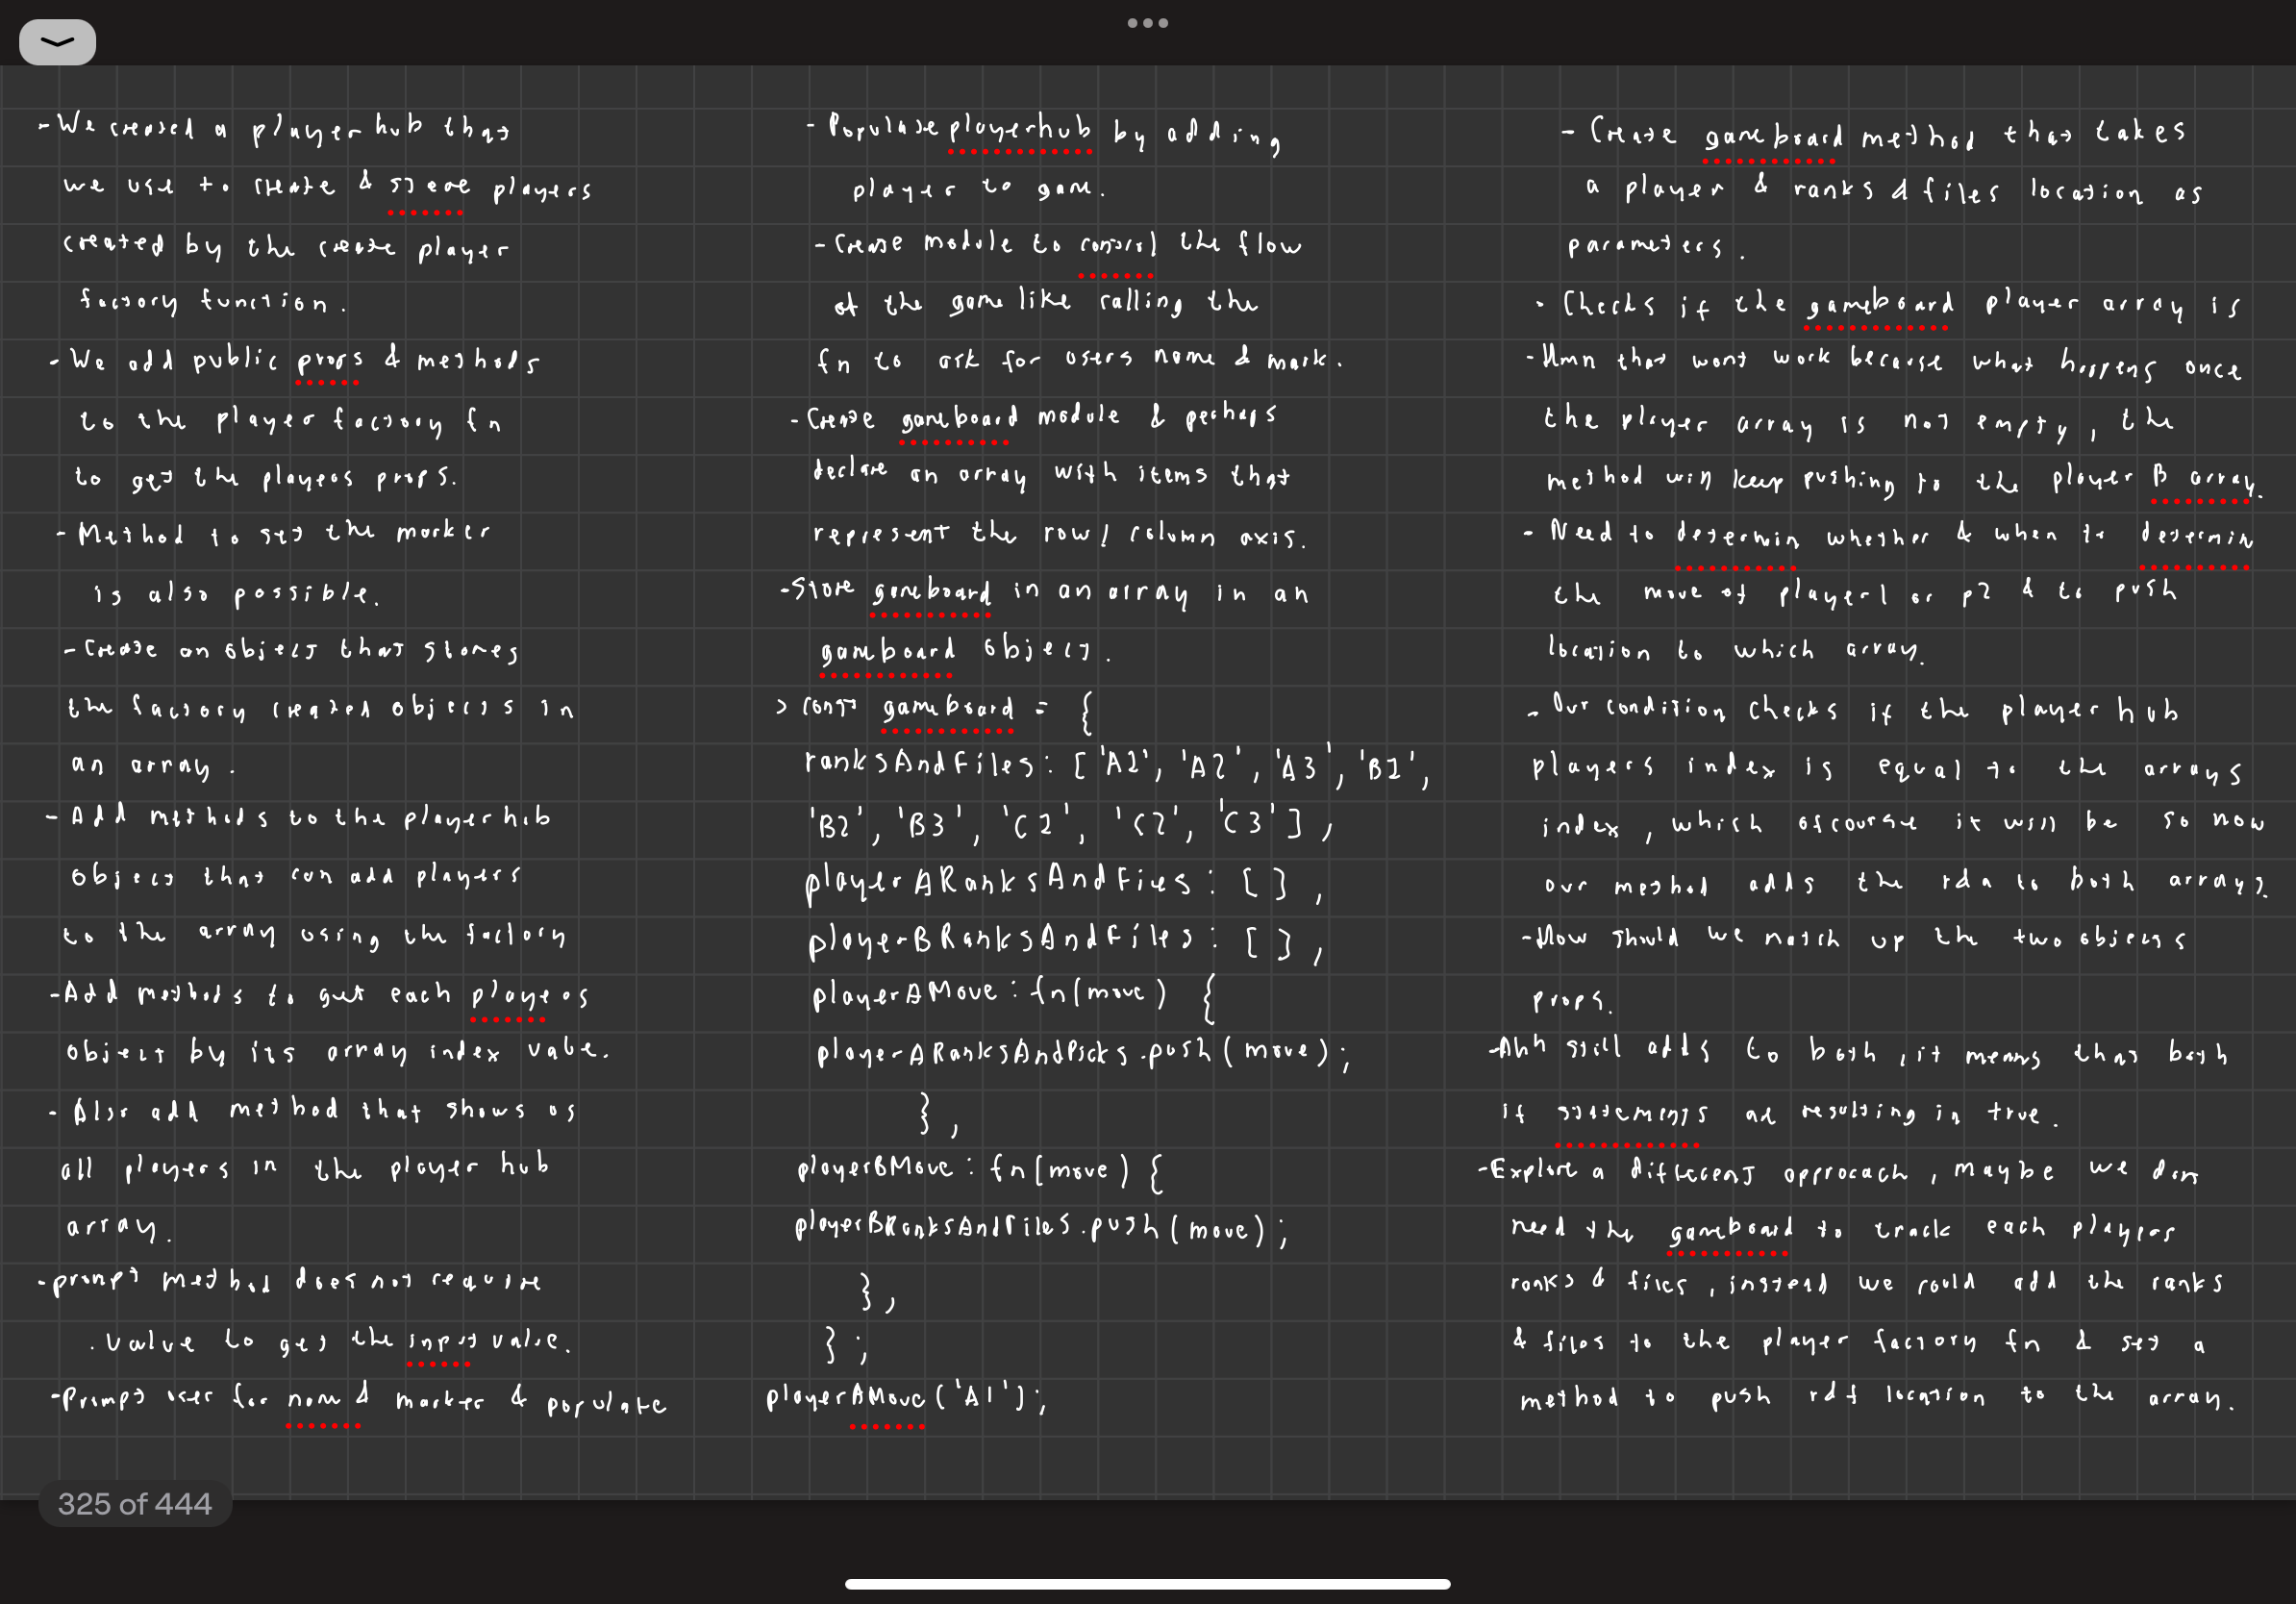 - We created a player hub that
we use to create & store players
created by the create player
factory function.
- We add public props & methods
to the player factory fn
to get the players props.
- Method to set the marker
is also possible.
- Create an object that stores
the factory created objects in
an array.
- Add methods to the player hub
object that can add players
to the array using the factory
- Add methods to get each players
object by its array index value.
- Also add method that shows us
all players in the player hub
array.
- prompt method does not require
. value to get the input value.
- Prompt user for name & marker & populate
- Populate playerhub by adding
player to game.
- Create module to control the flow
of the game like calling the
fn to ask for users name & mark.
- Create gameboard module & perhaps
declare an array with items that
represent the row/column axis.
- Store gameboard in an array in an
gameboard object.
> const gameboard = {
ranksAndFiles: ['A1', 'A2', 'A3', 'B1',
'B2', 'B3', 'C1', 'C2', 'C3'],
playerARanksAndFiles: [],
playerBRanksAndFiles: [],
playerAMove: fn(move) {
playerARanksAndPicks.push(move);
},
playerBMove: fn(move) {
playerBRanksAndFiles.push(move);
},
};
playerAMove('A1');
- Create gameboard method that takes
a player & ranks & files location as
parameters.
- Checks if the gameboard player array is
- Hmn that wont work because what happens once
the player array is not empty, the
method will keep pushing to the player B array.
- Need to determin whether & when to determin
the move of player1 or p2 & to push
location to which array.
- Our condition checks if the player hub
players index is equal to the arrays
index, which ofcourse it will be so now
our method adds the rda to both arrays.
- How should we match up the two objects
props.
- Ahh still adds to both, it means that both
if statements are resulting in true.
- Explore a different approcach, maybe we dont
need the gameboard to track each players
ranks & files, instead we could add the ranks
& files to the player factory fn & set a
method to push rdf location to the array.
325 of 444